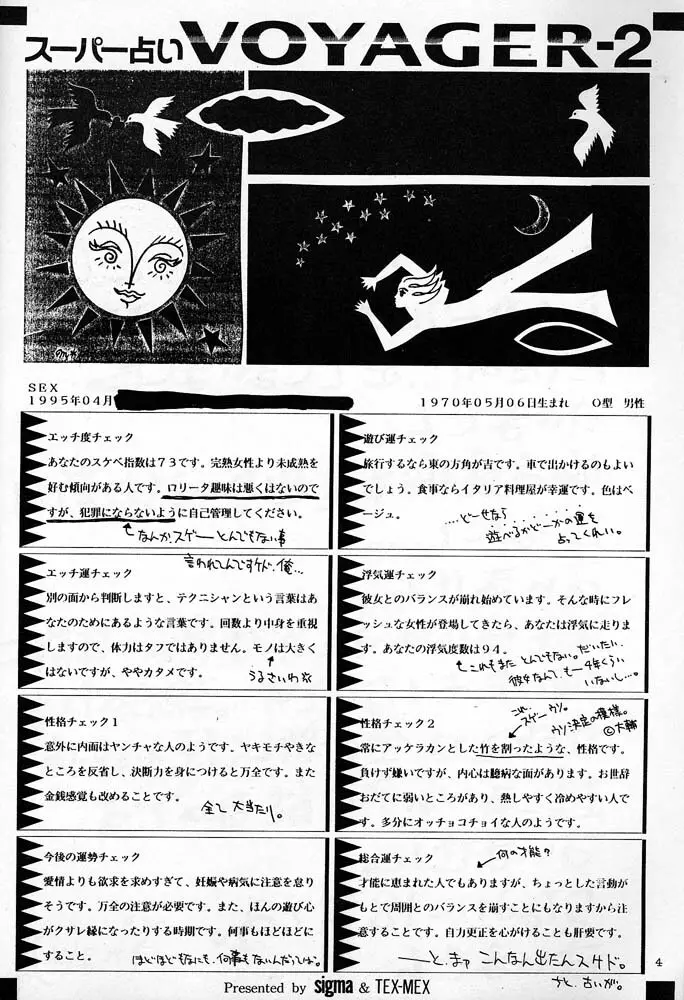 スーパー占い VOYAGER-2
SEX
1995年04月
1970年05月06日生まれ O型 男性
エッチ度チェック
あなたのスケベ指数は73です。完熟女性より未成熟を
好む傾向がある人です。ロリータ趣味は悪くはないので
すが、犯罪にならないように自己管理してください。
なんか、スゲーとんでもない事
言われてんですけど、俺…
遊び運チェック
旅行するなら東の方角が吉です。車で出かけるのもよい
でしょう。食事ならイタリア料理屋が幸運です。色はベ
ージュ。
…どーせなら
遊べるかどーかの運を
占ってくれい。
エッチ運チェック
別の面から判断しますと、テクニシャンという言葉はあ
なたのためにあるような言葉です。回数より中身を重視
しますので、体力はタフではありません。モノは大きく
はないですが、ややカタメです。
うるさいわい
浮気運チェック
彼女とのバランスが崩れ始めています。そんな時にフレ
ッシュな女性が登場してきたら、あなたは浮気に走りま
す。あなたの浮気度数は94。
これもまた とんでもない。だいたい、
彼女なんて、もー4年くらい
いないし…。
性格チェック1
意外に内面はヤンチャな人のようです。ヤキモチやきな
ところを反省し、決断力を身につけると万全です。また
金銭感覚も改めることです。
全て大当たり。
これ、
スゲーウソ。
ウソ決定の模様。
©大輔
性格チェック2
常にアッケラカンとした竹を割ったような、性格です。
負けず嫌いですが、内心は臆病な面があります。お世辞
おだてに弱いところがあり、熱しやすく冷めやすい人で
す。多分にオッチョコチョイな人のようです。
今後の運勢チェック
愛情よりも欲求を求めすぎて、妊娠や病気に注意を怠り
そうです。万全の注意が必要です。また、ほんの遊び心
がクサレ縁になったりする時期です。何事もほどほどに
すること。
ほどほどもなにも、何事もないんだってば。
総合運チェック
何の才能?
才能に恵まれた人でもありますが、ちょっとした言動が
もとで周囲とのバランスを崩すことにもなりますから注
意することです。自力更正を心がけることも肝要です。
―と、まァ こんなん出たんスケド。
ちと、古いが。
4
Presented by sigma & TEX-MEX